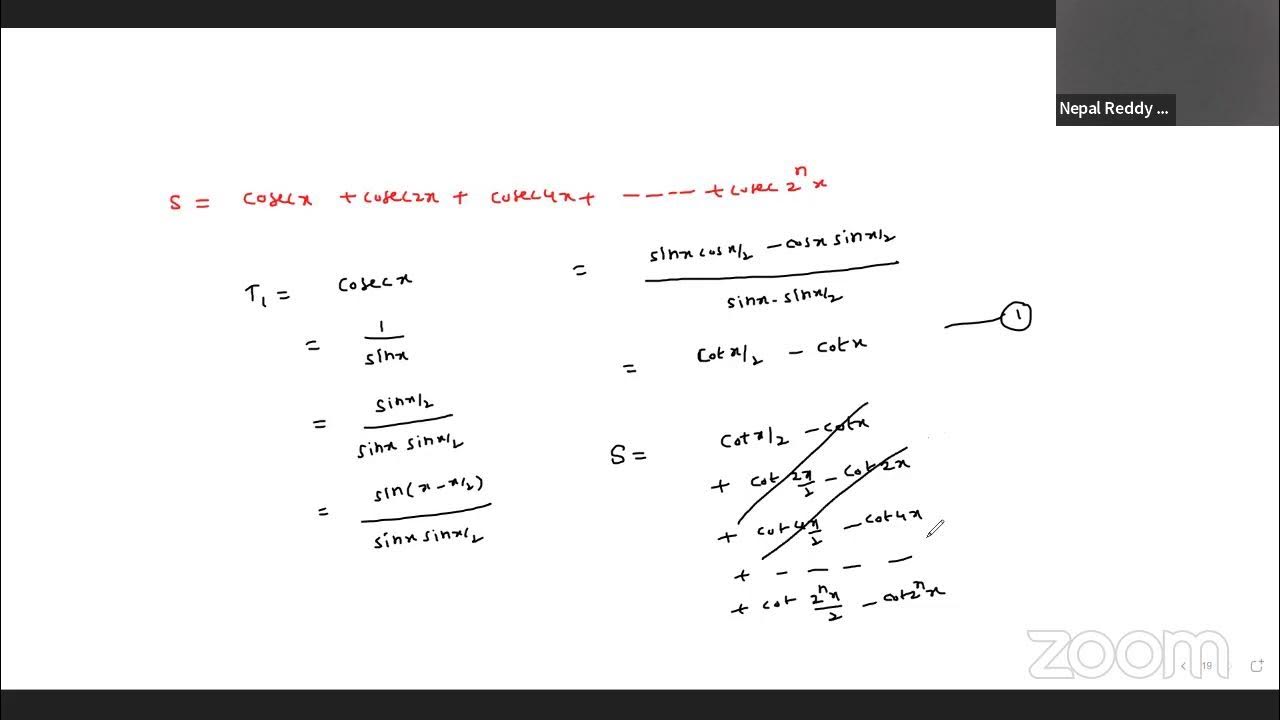 Nepal Reddy ...
S = cosecx + cosec2x + cosec4x + ---- + cosec 2^n x
T₁ = cosecx
= 1/sinx
= sinx/2 / sinx sinx/2
= sin(x - x/2) / sinx sinx/2
= sinx cosx/2 - cosx sinx/2 / sinx . sinx/2
= cotx/2 - cotx — ①
S = cotx/2 - cotx
+ cot 2x/2 - cot2x
+ cot4x/2 - cot4x
+ - — — —
+ cot 2^n x/2 - cot2^n x
zoom
19